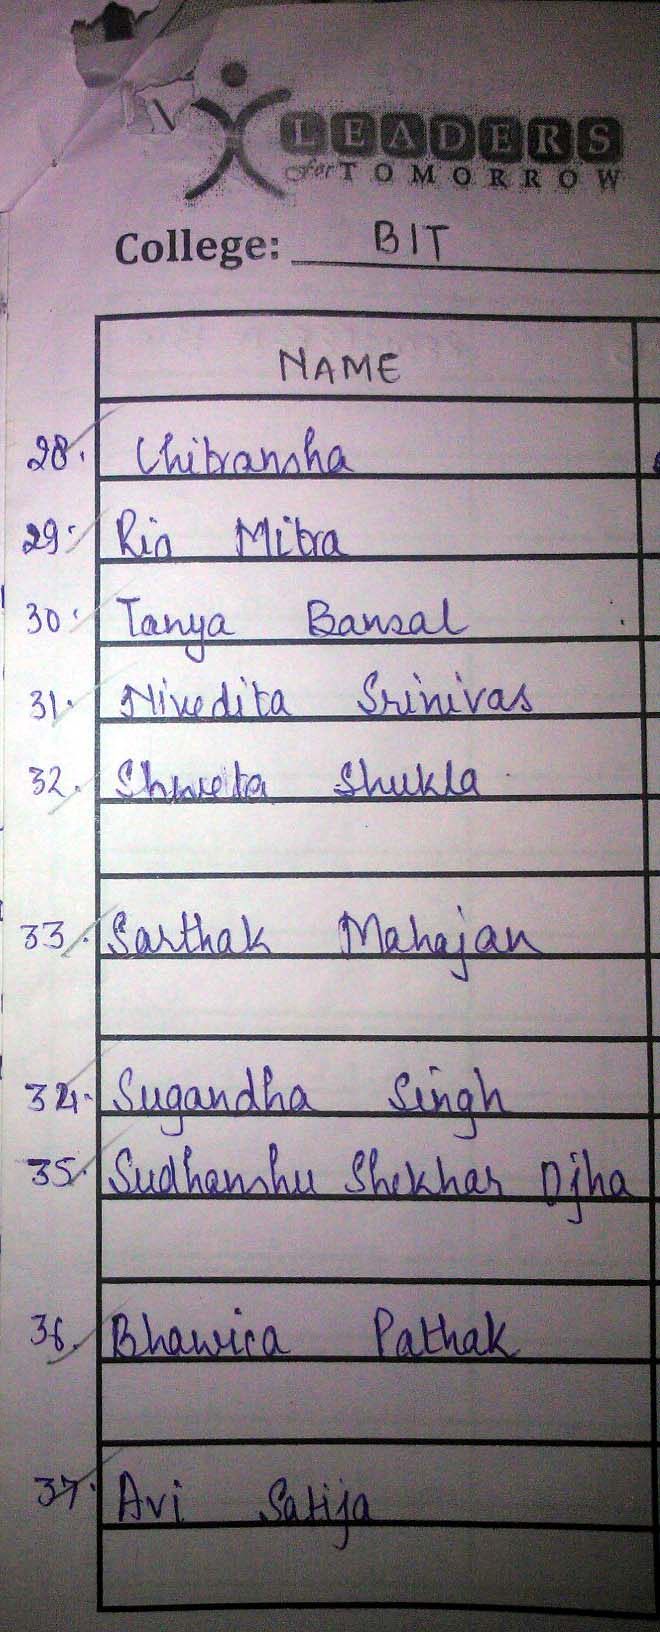 LEADERS
for TOMORROW
College: BIT
NAME
28. Chitransha
29. Ria Mitra
30. Tanya Bansal
31. Nivedita Srinivas
32. Shweta Shukla
33. Sarthak Mahajan
34. Sugandha Singh
35. Sudhanshu Shekhar Ojha
36. Bhawica Pathak
37. Avi Satija